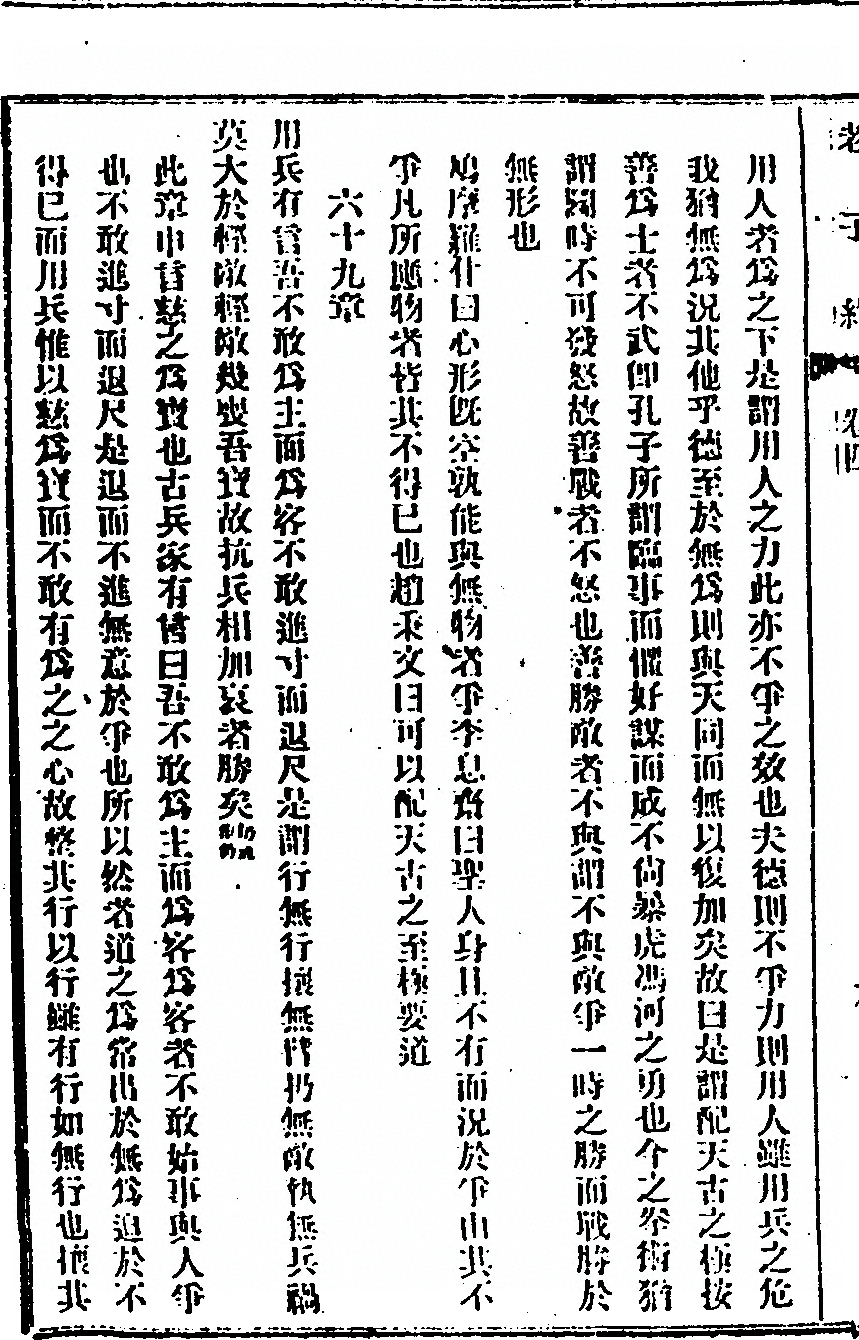 老子 卷四
用人者爲之下是謂用人之力此亦不爭之效也夫德則不爭力則用人雖用兵之危
我猶無爲況其他乎德至於無爲則與天同而無以復加矣故曰是謂配天古之極按
善爲士者不武卽孔子所謂臨事而懼好謀而成不尙暴虎馮河之勇也今之拳術猶
謂鬭時不可發怒故善戰者不怒也善勝敵者不與謂不與敵爭一時之勝而戰勝於
無形也
鳩摩羅什曰心形旣空孰能與無物者爭李息齋曰聖人身且不有而況於爭由其不
爭凡所應物者皆其不得已也趙秉文曰可以配天古之至極要道
六十九章
用兵有言吾不敢爲主而爲客不敢進寸而退尺是謂行無行攘無臂扔無敵執無兵禍
莫大於輕敵輕敵幾喪吾寶故抗兵相加哀者勝矣
此章申言慈之爲寶也古兵家有言曰吾不敢爲主而爲客爲客者不敢始事與人爭
也不敢進寸而退尺是退而不進無意於爭也所以然者道之爲常出於無爲迫於不
得已而用兵惟以慈爲寶而不敢有爲之之心故整其行以行雖有行如無行也攘其